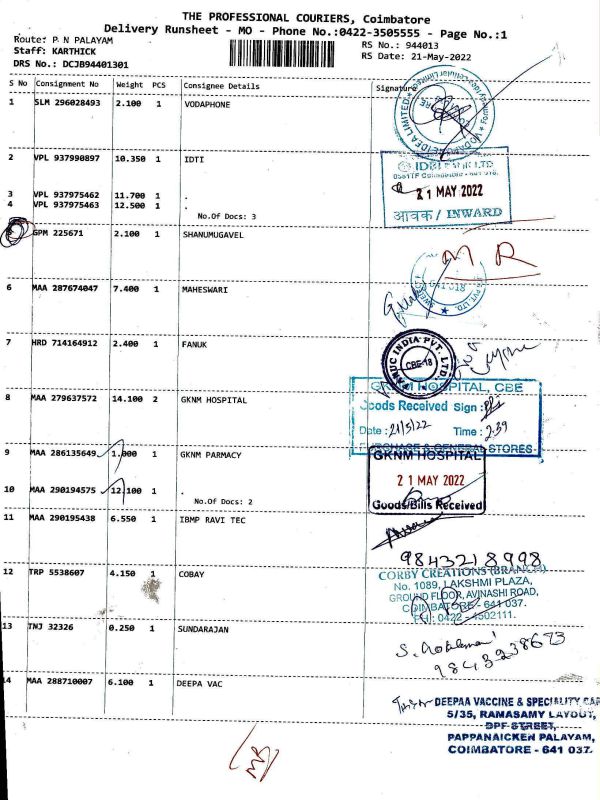 THE PROFESSIONAL COURIERS, Coimbatore
Delivery Runsheet - MO - Phone No.:0422-3505555 - Page No.:1
Route: P N PALAYAM
RS No.: 944013
Staff: KARTHICK
RS Date: 21-May-2022
DRS No.: DCJB94401301
S No Consignment No Weight PCS Consignee Details Signature
1 SLM 296028493 2.100 1 VODAPHONE
2 VPL 937990897 10.350 1 IDTI
IDBI BANK LTD
21 MAY 2022
आवक / INWARD
3 VPL 937975462 11.700 1 .
4 VPL 937975463 12.500 1 .
No.Of Docs: 3
GPM 225671 2.100 1 SHANUMUGAVEL
M R
6 MAA 287674047 7.400 1 MAHESWARI
7 HRD 714164912 2.400 1 FANUK
FANUC INDIA PVT. LTD.
CBE-18
8 MAA 279637572 14.100 2 GKNM HOSPITAL
GKNM HOSPITAL, CBE
Goods Received Sign :
Date : 21/5/22 Time : 2.39
PURCHASE & GENERAL STORES
9 MAA 286135649 1.000 1 GKNM PARMACY
GKNM HOSPITAL
21 MAY 2022
Goods/Bills Received
10 MAA 290194575 12.100 1 .
No.Of Docs: 2
11 MAA 290195438 6.550 1 IBMP RAVI TEC
9843218998
12 TRP 5538607 4.150 1 COBAY
CORBY CREATIONS (BRANCH)
No. 1089, LAKSHMI PLAZA,
GROUND FLOOR, AVINASHI ROAD,
COIMBATORE - 641 037.
PH : 0422 - 4502111.
13 TNJ 32326 0.250 1 SUNDARAJAN
14 MAA 288710007 6.100 1 DEEPA VAC
DEEPAA VACCINE & SPECIALITY CAR
5/35, RAMASAMY LAYOUT,
DPF STREET,
PAPPANAICKEN PALAYAM,
COIMBATORE - 641 037.